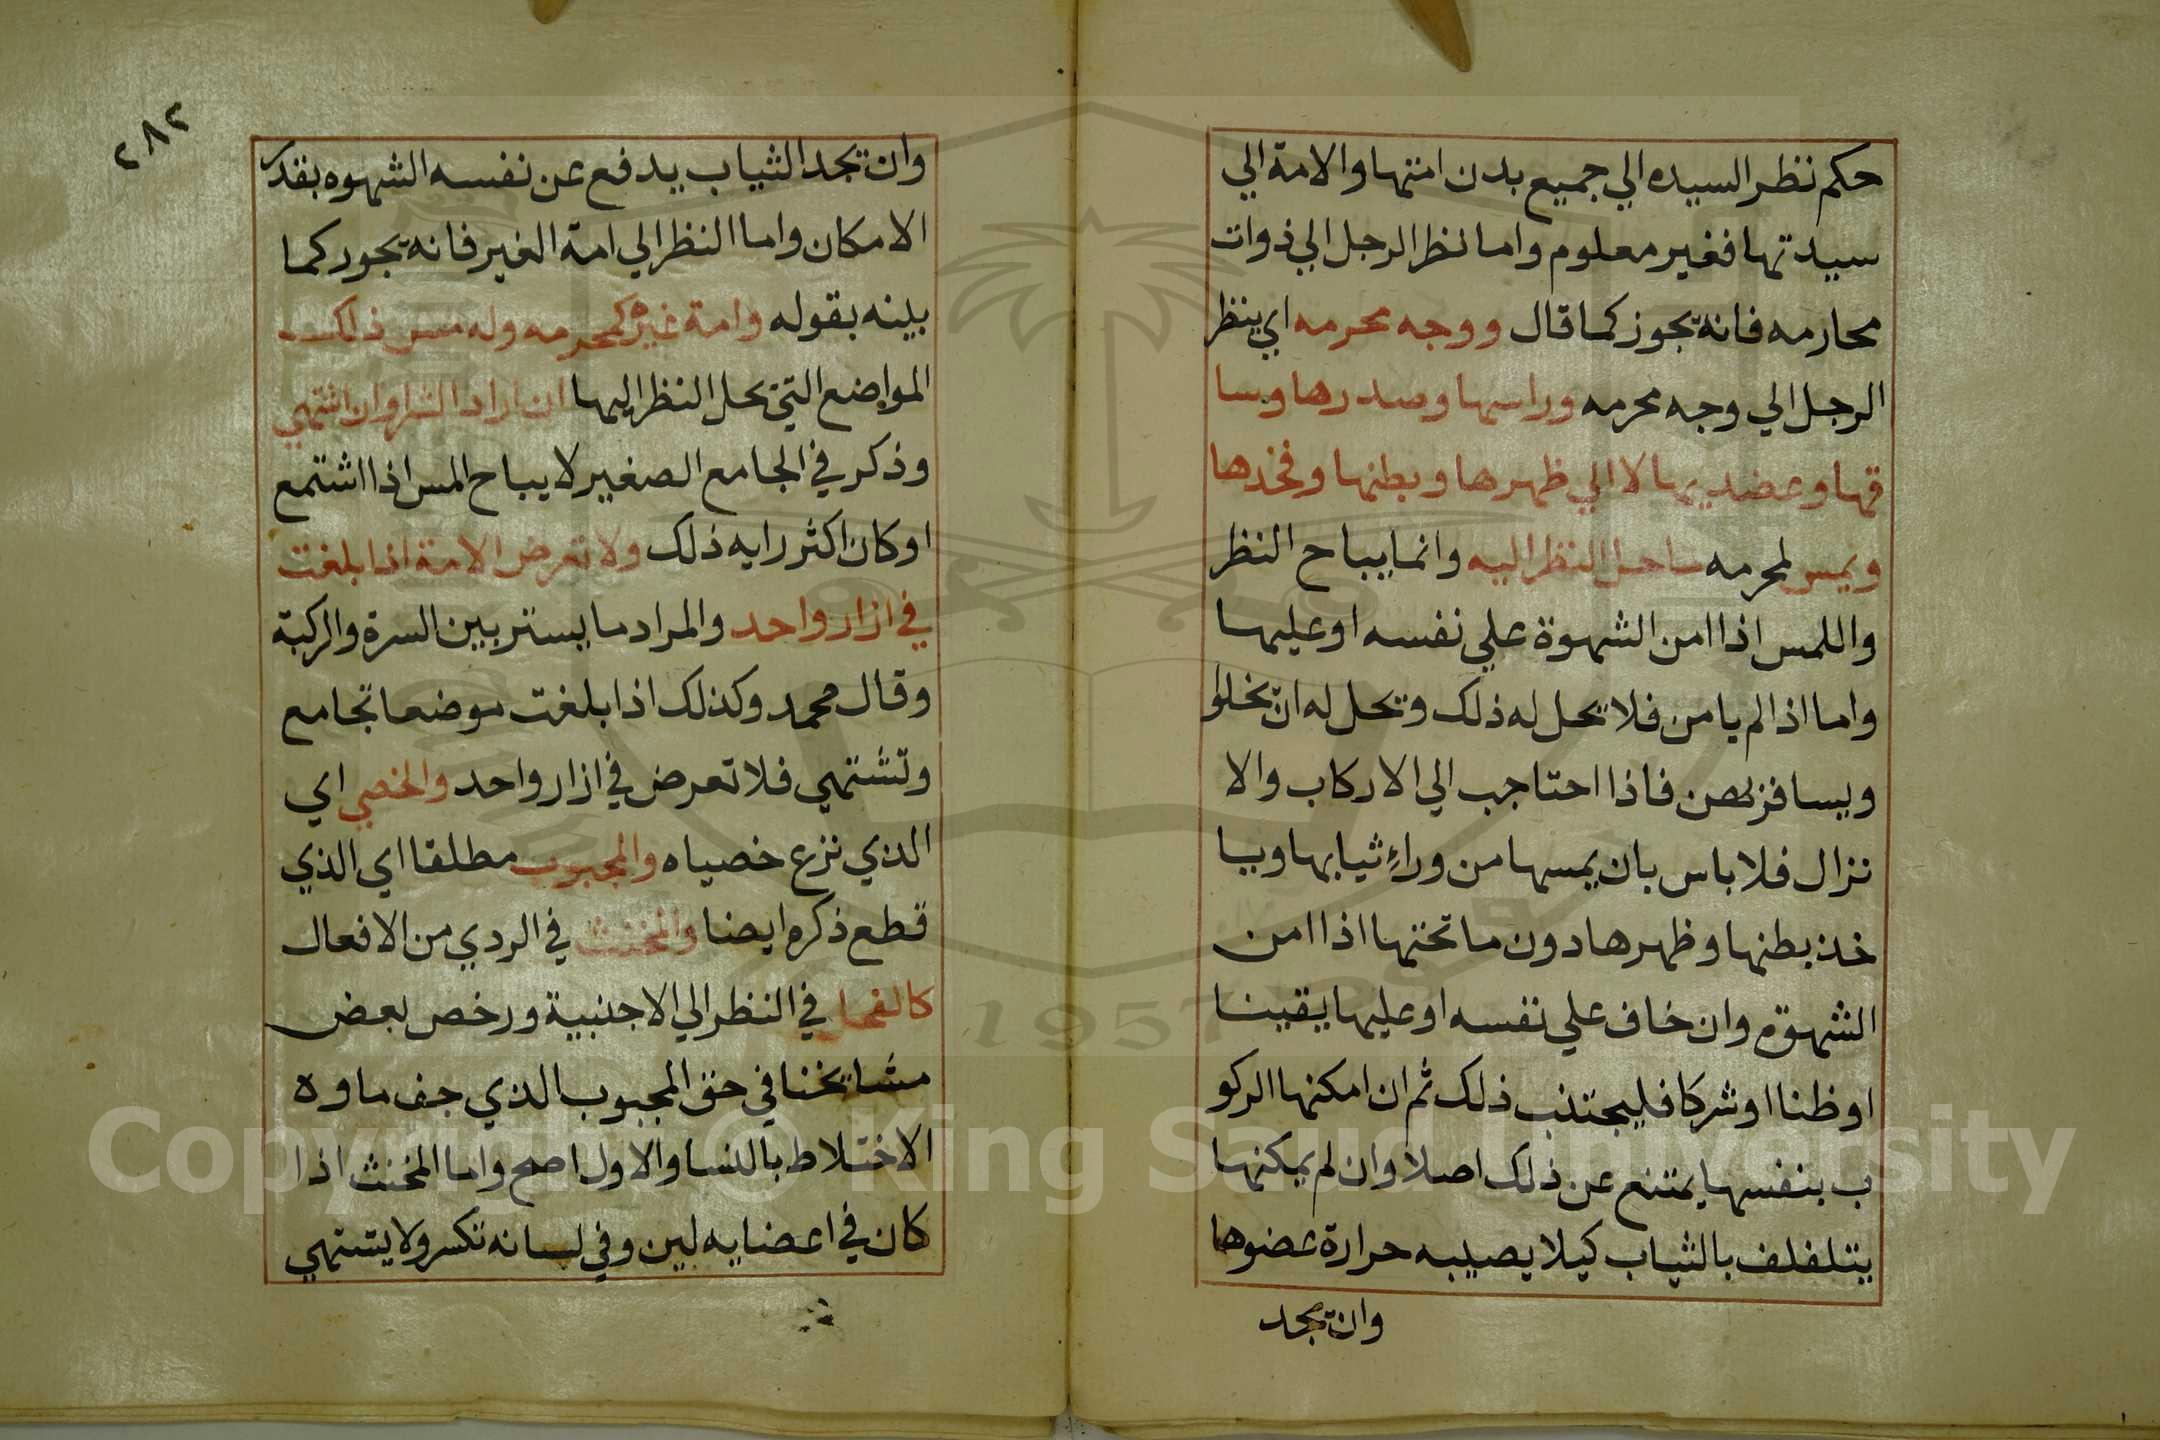 حكم نظر السيده الي جميع بدن امتها والامة الي
سيدتها فغير معلوم واما نظر الرجل الي ذوات
محارمه فانه يجوز كما قال ووجه محرمه اي ينظر
الرجل الي وجه محرمه وراسها وصدرها وسا
قها وعضديها لا الي ظهرها وبطنها وفخدها
ويمس لمحرمه ماحل النظر اليه وانما يباح النظر
واللمس اذا امن الشهوة علي نفسه او عليها
واما اذا لم يامن فلا يحل له ذلك ويحل له ان يخلوا
ويسافر بهن فاذا احتاجب الي الاركاب والا
نزال فلا باس بان يمسها من وراء ثيابها ويا
خذ بطنها وظهرها دون ما تحتها اذا امن
الشهوة وان خاف علي نفسه او عليها يقينا
او ظنا او شركا فليجتنب ذلك ثم ان امكنها الركو
ب بنفسها يمتنع عن ذلك اصلا وان لم يمكنها
يتلفلف بالثياب كيلا يصيبه حرارة عضوها
وان تجد
٢٨٢
وان تجد الثياب يدفع عن نفسه الشهوه بقدر
الامكان واما النظر الي امة الغير فانه يجور كما
بينه بقوله وامة غيره كمحرمه وله مس ذلك
المواضع التي يحل النظر اليها ان اراد الشرا وان اشتهي
وذكر في الجامع الصغير لا يباح المس اذا اشتمع
او كان اكثر رايه ذلك ولا تعرض الامة اذا بلغت
في ازار واحد والمراد ما يستر بين السرة والركبة
وقال محمد وكذلك اذا بلغت موضعا تجامع
وتشتهي فلا تعرض في ازار واحد والخصي اي
الذي نزع خصياه والمجبوب مطلقا اي الذي
قطع ذكره ايضا والمخنث في الردي من الافعال
كالفحل في النظر الي الاجنبية ورخص بعض
مشايخنا في حق المجبوب الذي جف ماوه
الاختلاط بالنسا والاول اصح واما المخنث اذا
كان في اعضايه لين وفي لسانه تكسر ولا يشتهي
Copyright © King Saud University
1957